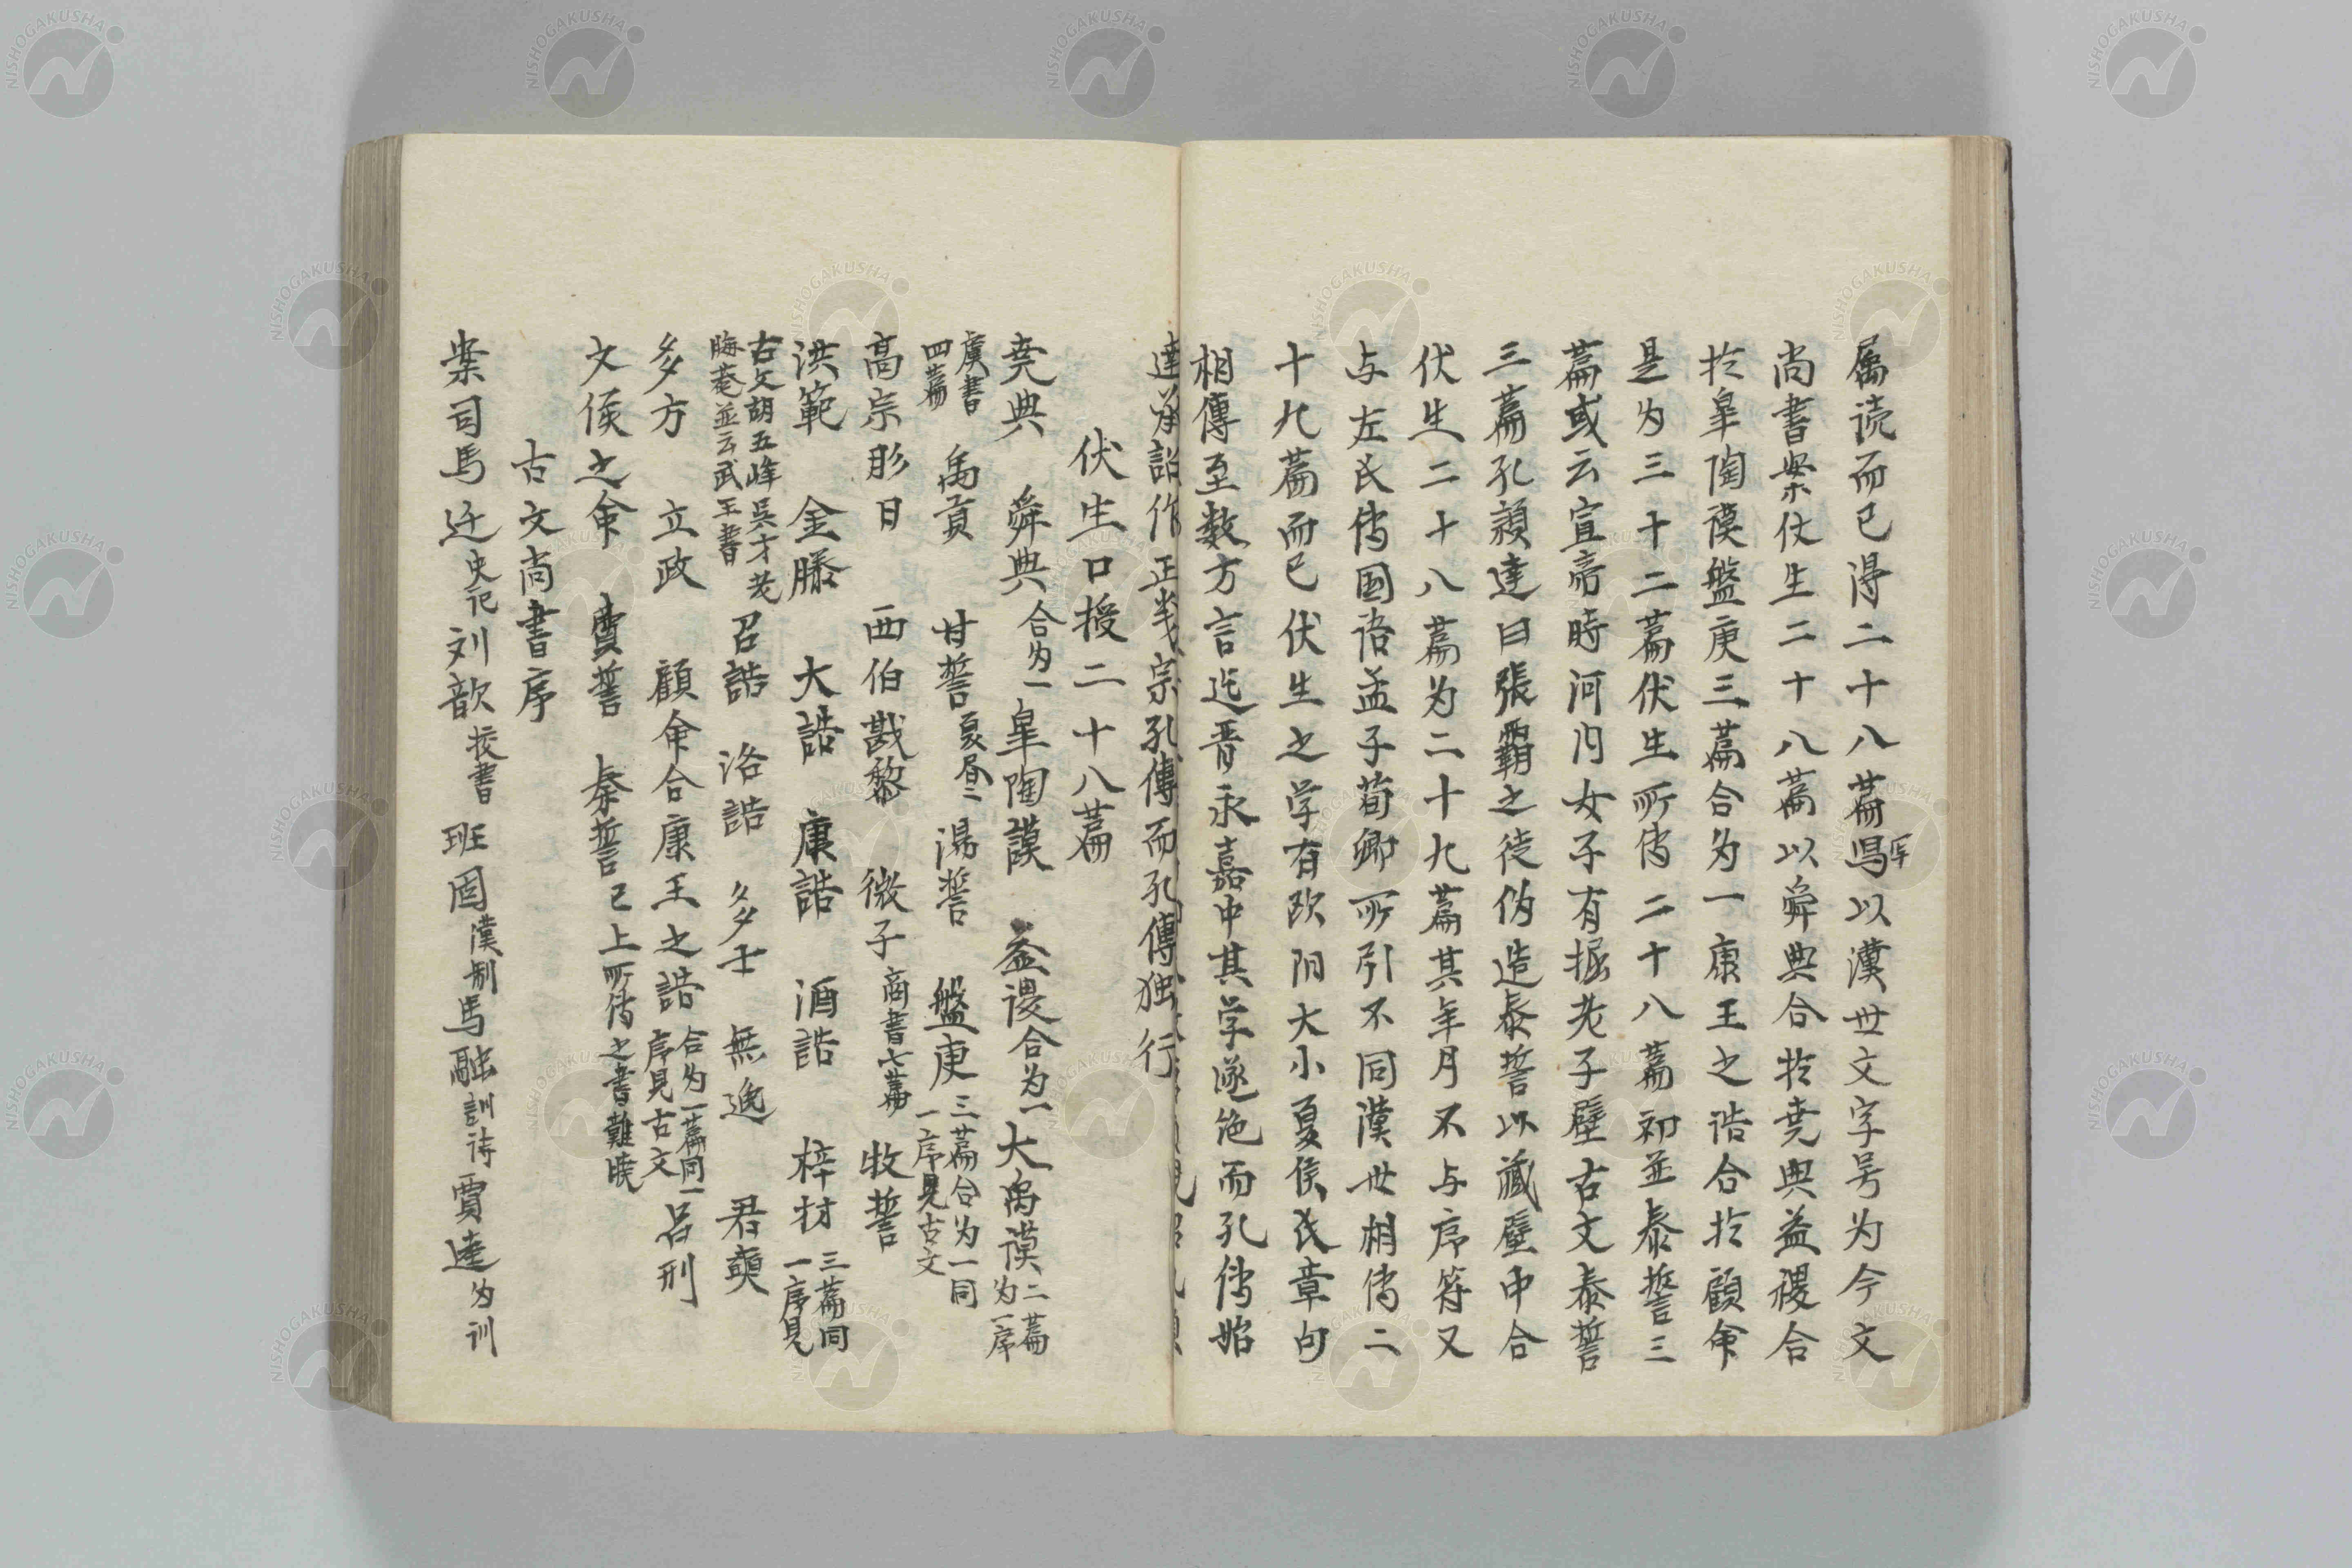 属读而已得二十八篇写以漢世文字号为今文
尚書案伏生二十八篇以舜典合於尭典益稷合
於皐陶謨盤庚三篇合为一康王之诰合於顧命
是为三十二篇伏生所传二十八篇初並泰誓三
篇或云宣帝時河内女子有掘老子壁古文泰誓
三篇孔頴達曰張霸之徒伪造泰誓以蔵壁中合
伏生二十八篇为二十九篇其年月不与序符又
与左氏传国语孟子荀卿所引不同漢世相传二
十九篇而已伏生之学有欧阳大小夏侯氏章句
相傳至数方言迄晋永嘉中其学遂绝而孔传始
達承詔作正义宗孔傳而孔傳独行
伏生口授二十八篇
尭典 舜典合为一 皐陶謨 益稷合为一 大禹謨二篇为一序
虞書四篇 禹貢 甘誓夏書二 湯誓 盤庚三篇合为一同一序見古文
高宗肜日 西伯戡黎 微子商書七篇 牧誓
洪範 金縢 大誥 康誥 酒誥 梓材三篇同一序見
古文胡五峰吴才老晦菴並云武王書 召誥 洛誥 多士 無逸 君奭
多方 立政 顧命合康王之誥合为一篇同一序見古文 吕刑
文侯之命 費誓 秦誓已上所传之書難暁
古文尚書序
案司馬迁史记刘歆校書班固漢制馬融訓诗賈逵为训
NISHOGAKUSHA